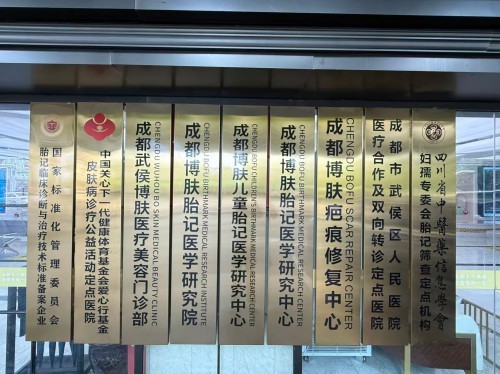 国家标准化管理委员会
胎记临床诊断与治疗技术标准备案企业
中国关心下一代健康体育基金会爱心行基金
皮肤病诊疗公益活动定点医院
CHENGDU WUHOU BO SKIN MEDICAL BEAUTY CLINIC
成都武侯博肤医疗美容门诊部
CHENGDU BOFU BIRTHMARK MEDICAL RESEARCH INSTITUTE
成都博肤胎记医学研究院
CHENGDU BOFU CHILDREN'S BIRTHMARK MEDICAL RESEARCH CENTER
成都博肤儿童胎记医学研究中心
CHENGDU BOFU BIRTHMARK MEDICAL RESEARCH CENTER
成都博肤胎记医学研究中心
CHENGDU BOFU SCAR REPAIR CENTER
成都博肤疤痕修复中心
成都市武侯区人民医院
医疗合作及双向转诊定点医院
四川省中醫藥信息學會
妇孺专委会胎记筛查定点机构